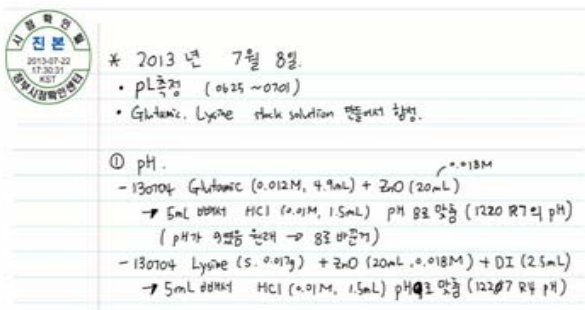 시점확인필
진본
2013-07-22
17:30:31
KST
정부시점확인센터
* 2013 년 7월 8일.
• PL측정 (0625 ~0701)
• Glutamic, Lysine stock solution 만들어서 합성.
① pH.
0.018M
- 130704 Glutamic (0.012M, 4.9mL) + ZnO (20mL)
→ 5mL 빼서 HCl (0.01M, 1.5mL) pH 8로 맞춤 (1220 R7의 pH)
( pH가 9였음 원래 → 8로 바꾼거)
- 130704 Lysine (s. 0.017g) + ZnO (20mL, 0.018M) + DI (2.5mL)
→ 5mL 빼서 HCl (0.01M, 1.5mL) pH 9로 맞춤 (12207 R4 pH)